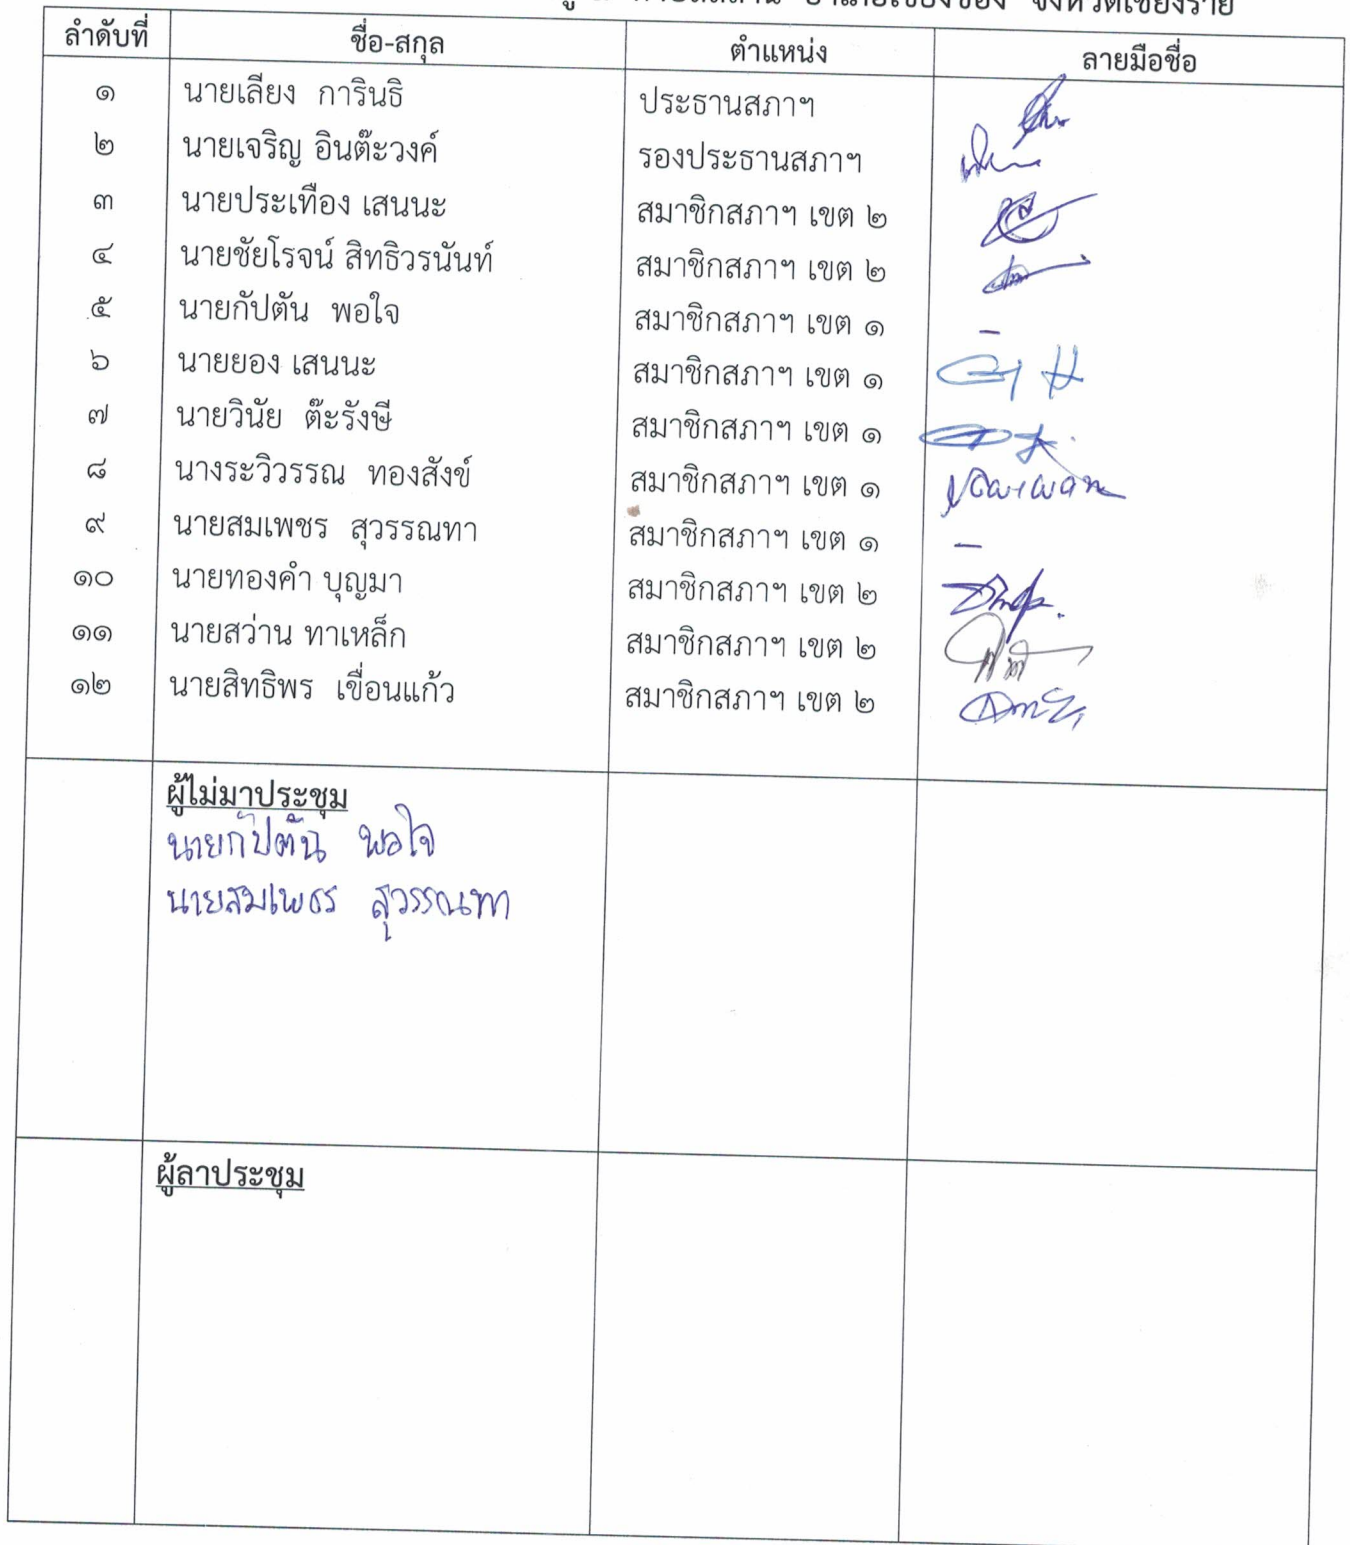 อำเภอเชียงของ จังหวัดเชียงราย
ลำดับที่ ชื่อ-สกุล ตำแหน่ง ลายมือชื่อ
๑ นายเลียง การินธิ ประธานสภาฯ
๒ นายเจริญ อินต๊ะวงค์ รองประธานสภาฯ
๓ นายประเทือง เสนนะ สมาชิกสภาฯ เขต ๒
๔ นายชัยโรจน์ สิทธิวรนันท์ สมาชิกสภาฯ เขต ๒
๕ นายกัปตัน พอใจ สมาชิกสภาฯ เขต ๑ -
๖ นายยอง เสนนะ สมาชิกสภาฯ เขต ๑
๗ นายวินัย ต๊ะรังษี สมาชิกสภาฯ เขต ๑
๘ นางระวิวรรณ ทองสังข์ สมาชิกสภาฯ เขต ๑
๙ นายสมเพชร สุวรรณทา สมาชิกสภาฯ เขต ๑ -
๑๐ นายทองคำ บุญมา สมาชิกสภาฯ เขต ๒
๑๑ นายสว่าน ทาเหล็ก สมาชิกสภาฯ เขต ๒
๑๒ นายสิทธิพร เขื่อนแก้ว สมาชิกสภาฯ เขต ๒
ผู้ไม่มาประชุม
นายกัปตัน พอใจ
นายสมเพชร สุวรรณทา
ผู้ลาประชุม